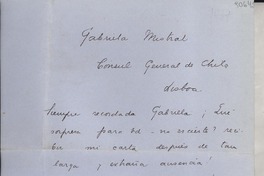 Gabriela Mistral
Consul General de Chile
Lisboa.
Siempre recordada Gabriela ¡ Qué
sorpresa para Ud - no es cierto? reci-
bir mi carta después de tan
larga y extraña ausencia!